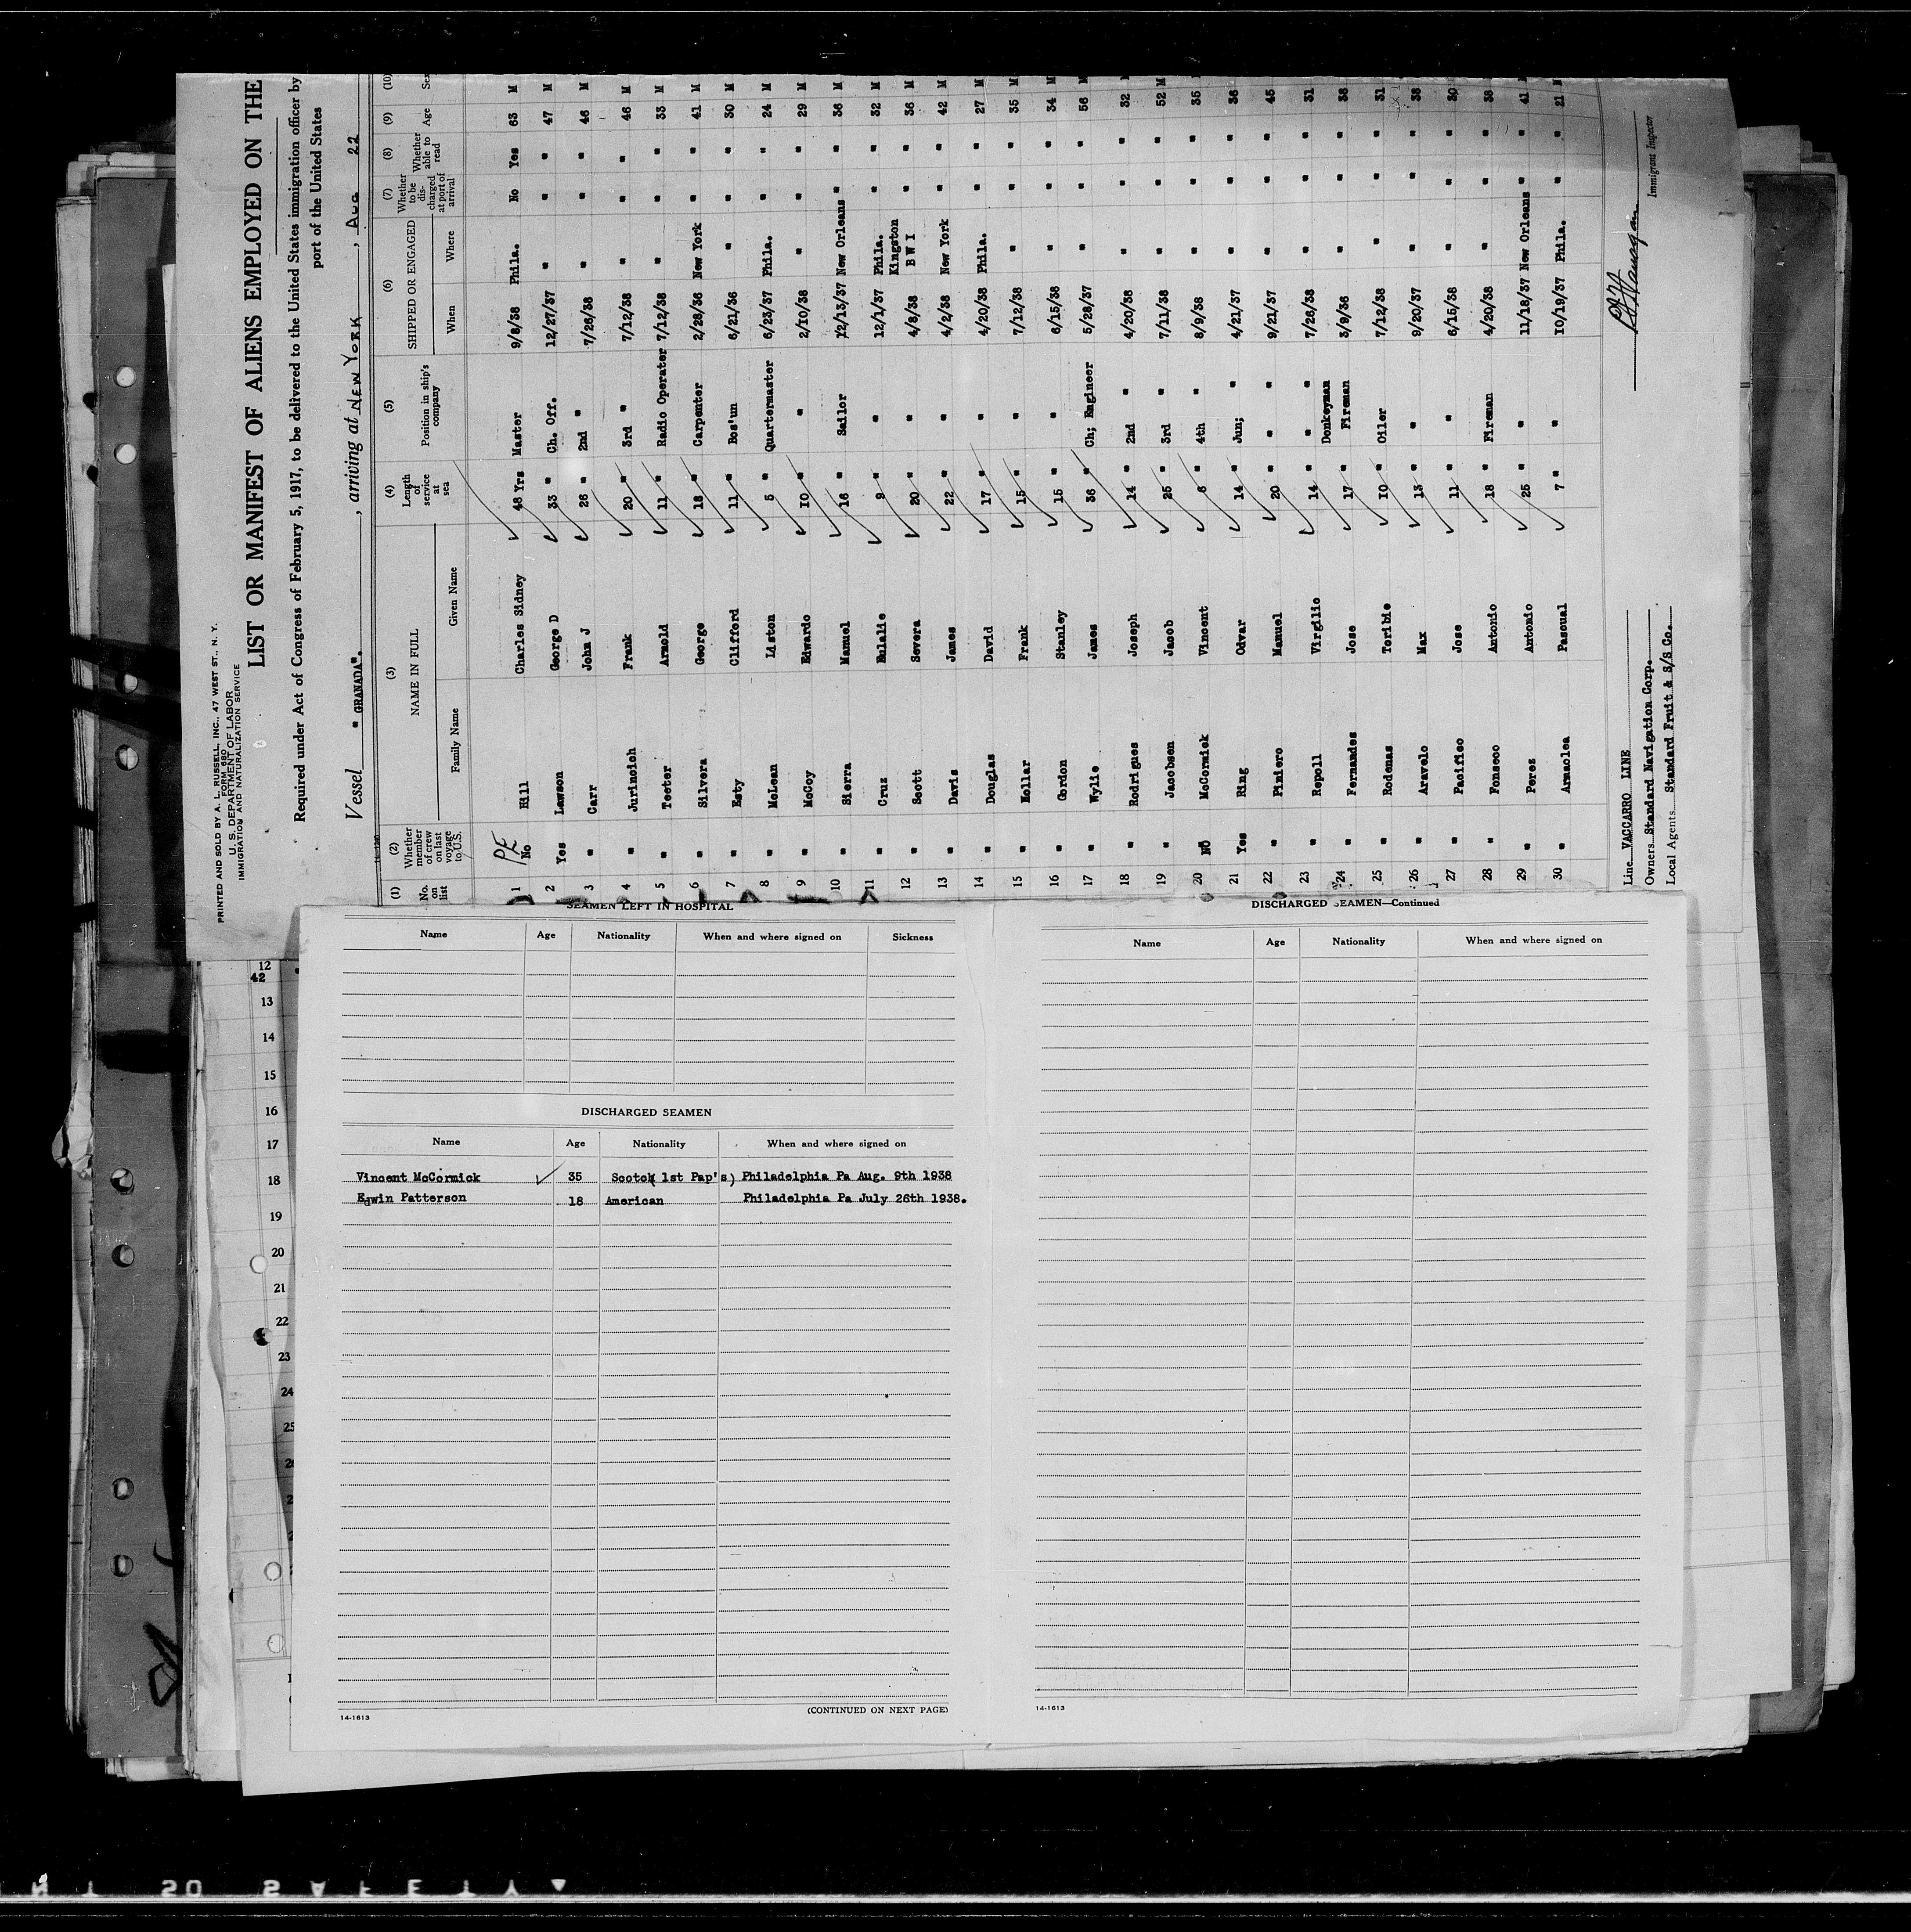 PRINTED AND SOLD BY A. L. RUSSELL, INC., 47 WEST ST., N. Y.
FORM 680
U. S. DEPARTMENT OF LABOR
IMMIGRATION AND NATURALIZATION SERVICE
LIST OR MANIFEST OF ALIENS EMPLOYED ON THE
Required under Act of Congress of February 5, 1917, to be delivered to the United States immigration officer by
port of the United States
Vessel " GRANADA". , arriving at NEW YORK , Aug 22
(1) No. on list (2) Whether member of crew on last voyage to U.S. (3) NAME IN FULL Family Name Given Name (4) Length of service at sea (5) Position in ship's company (6) SHIPPED OR ENGAGED When Where (7) Whether to be discharged at port of arrival (8) Whether able to read (9) Age (10) Sex
PE
1 No Hill Charles Sidney 48 Yrs Master 9/8/38 Phila. No Yes 63 M
2 Yes Lawson George D 33 " Ch. Off. 12/27/37 " " " 47 M
3 " Carr John J 26 " 2nd " 7/26/38 " " " 46 M
4 " Jurincich Frank 20 " 3rd " 7/12/38 " " " 46 M
5 " Teeter Arnold 11 " Radio Operator 7/12/38 " " " 33 M
6 " Silvera George 18 " Carpenter 2/28/36 New York " " 41 M
7 " Esty Clifford 11 " Bos'un 6/21/36 " " " 30 M
8 " McLean Liston 5 " Quartermaster 6/23/37 Phila. " " 24 M
9 " McCoy Edwardo 10 " " 2/10/38 " " " 29 M
10 " Sierra Manuel 16 " Sailor 12/13/37 New Orleans " " 36 M
11 " Cruz Eulalie 9 " " 12/1/37 Phila. " " 32 M
12 " Scott Severa 20 " " 4/8/38 Kingston B W I " " 36 M
13 " Davis James 22 " " 4/2/38 New York " " 42 M
14 " Douglas David 17 " " 4/20/38 Phila. " " 27 M
15 " Hollar Frank 15 " " 7/12/38 " " " 35 M
16 " Gordon Stanley 15 " " 6/15/38 " " " 34 M
17 " Wylie James 36 " Ch; Engineer 5/28/37 " " " 56 M
18 " Rodrigues Joseph 14 " 2nd " 4/20/38 " " " 32 M
19 " Jacobsen Jacob 25 " 3rd " 7/11/38 " " " 52 M
20 NO McCormick Vincent 6 " 4th " 8/9/38 " " " 35
21 Yes Ring Odvar 14 " Jun; " 4/21/37 " " " 36
22 " Piniero Manuel 20 " " " 9/21/37 " " " 45
23 " Repoll Virgilio 14 " " " 7/26/38 " " " 31
24 " Fernandes Jose 17 " Donkeyman Fireman 3/9/36 " " " 38
25 " Rodenas Toribie 10 " Oiler 7/12/38 " " " 31
26 " Aravelo Max 13 " " 9/20/37 " " " 38
27 " Pacifico Jose 11 " " 6/15/38 " " " 30
28 " Fonseco Antonio 18 " Fireman 4/20/38 " " " 38
29 " Perez Antonio 25 " " 11/18/37 New Orleans " " 41
30 " Armolea Pascual 7 " " 10/19/37 Phila. " " 21 M
Line VACCARRO LINE
Owners Standard Navigation Corp.
Local Agents Standard Fruit & S/S Co.
Immigrant Inspector
SEAMEN LEFT IN HOSPITAL
Name Age Nationality When and where signed on Sickness
DISCHARGED SEAMEN
Name Age Nationality When and where signed on
Vincent McCormick 35 Scotch( 1st Pap's) Philadelphia Pa Aug. 9th 1938
Edwin Patterson 18 American Philadelphia Pa July 26th 1938.
(CONTINUED ON NEXT PAGE)
14-1613
DISCHARGED SEAMEN—Continued
Name Age Nationality When and where signed on
14-1613
12
42
13
14
15
16
17
18
19
20
21
22
23
24
25
SAFETY